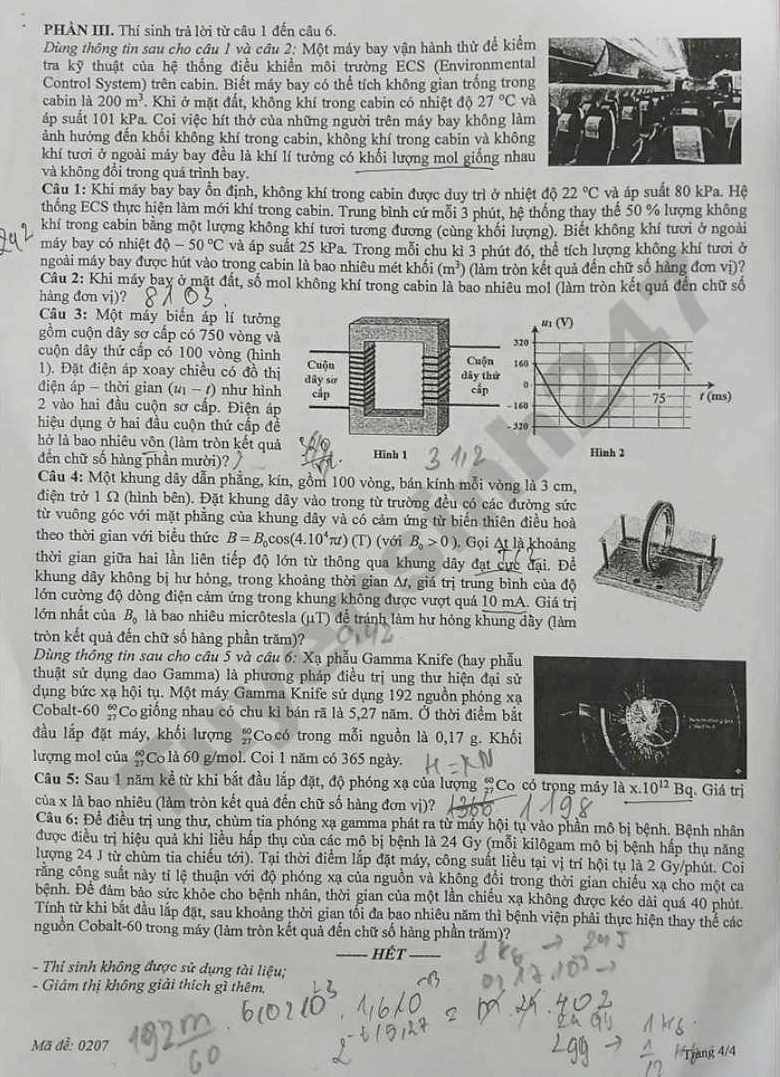 PHẦN III. Thí sinh trả lời từ câu 1 đến câu 6.
Dùng thông tin sau cho câu 1 và câu 2: Một máy bay vận hành thử để kiểm
tra kỹ thuật của hệ thống điều khiển môi trường ECS (Environmental
Control System) trên cabin. Biết máy bay có thể tích không gian trống trong
cabin là 200 m³. Khi ở mặt đất, không khí trong cabin có nhiệt độ 27 ⁰C và
áp suất 101 kPa. Coi việc hít thở của những người trên máy bay không làm
ảnh hưởng đến khối không khí trong cabin, không khí trong cabin và không
khí tươi ở ngoài máy bay đều là khí lí tưởng có khối lượng mol giống nhau
và không đổi trong quá trình bay.
Câu 1: Khi máy bay bay ổn định, không khí trong cabin được duy trì ở nhiệt độ 22 ⁰C và áp suất 80 kPa. Hệ
thống ECS thực hiện làm mới khí trong cabin. Trung bình cứ mỗi 3 phút, hệ thống thay thế 50 % lượng không
khí trong cabin bằng một lượng không khí tươi tương đương (cùng khối lượng). Biết không khí tươi ở ngoài
máy bay có nhiệt độ – 50 ⁰C và áp suất 25 kPa. Trong mỗi chu kì 3 phút đó, thể tích lượng không khí tươi ở
ngoài máy bay được hút vào trong cabin là bao nhiêu mét khối (m³) (làm tròn kết quả đến chữ số hàng đơn vị)?
242
Câu 2: Khi máy bay ở mặt đất, số mol không khí trong cabin là bao nhiêu mol (làm tròn kết quả đến chữ số
hàng đơn vị)? 8103
Câu 3: Một máy biến áp lí tưởng
gồm cuộn dây sơ cấp có 750 vòng và
cuộn dây thứ cấp có 100 vòng (hình
1). Đặt điện áp xoay chiều có đồ thị
điện áp – thời gian (u₁ – t) như hình
2 vào hai đầu cuộn sơ cấp. Điện áp
hiệu dụng ở hai đầu cuộn thứ cấp để
hở là bao nhiêu vôn (làm tròn kết quả
đến chữ số hàng phần mười)?
Cuộn
dây sơ
cấp
Cuộn
dây thứ
cấp
Hình 1
31,2
u₁ (V)
320
160
0
– 160
– 320
75
t (ms)
Hình 2
Câu 4: Một khung dây dẫn phẳng, kín, gồm 100 vòng, bán kính mỗi vòng là 3 cm,
điện trở 1 Ω (hình bên). Đặt khung dây vào trong từ trường đều có các đường sức
từ vuông góc với mặt phẳng của khung dây và có cảm ứng từ biến thiên điều hoà
theo thời gian với biểu thức B = B₀cos(4.10⁴πt) (T) (với B₀ > 0). Gọi Δt là khoảng
thời gian giữa hai lần liên tiếp độ lớn từ thông qua khung dây đạt cực đại. Để
khung dây không bị hư hỏng, trong khoảng thời gian Δt, giá trị trung bình của độ
lớn cường độ dòng điện cảm ứng trong khung không được vượt quá 10 mA. Giá trị
lớn nhất của B₀ là bao nhiêu micrôtesla (μT) để tránh làm hư hỏng khung dây (làm
tròn kết quả đến chữ số hàng phần trăm)?
0,42
Dùng thông tin sau cho câu 5 và câu 6: Xạ phẫu Gamma Knife (hay phẫu
thuật sử dụng dao Gamma) là phương pháp điều trị ung thư hiện đại sử
dụng bức xạ hội tụ. Một máy Gamma Knife sử dụng 192 nguồn phóng xạ
Cobalt-60 ⁶⁰₂₇Co giống nhau có chu kì bán rã là 5,27 năm. Ở thời điểm bắt
đầu lắp đặt máy, khối lượng ⁶⁰₂₇Co có trong mỗi nguồn là 0,17 g. Khối
lượng mol của ⁶⁰₂₇Co là 60 g/mol. Coi 1 năm có 365 ngày.
H = λN
Câu 5: Sau 1 năm kể từ khi bắt đầu lắp đặt, độ phóng xạ của lượng ⁶⁰₂₇Co có trong máy là x.10¹² Bq. Giá trị
của x là bao nhiêu (làm tròn kết quả đến chữ số hàng đơn vị)? 1366 1198
Câu 6: Để điều trị ung thư, chùm tia phóng xạ gamma phát ra từ máy hội tụ vào phần mô bị bệnh. Bệnh nhân
được điều trị hiệu quả khi liều hấp thụ của các mô bị bệnh là 24 Gy (mỗi kilôgam mô bị bệnh hấp thụ năng
lượng 24 J từ chùm tia chiếu tới). Tại thời điểm lắp đặt máy, công suất liều tại vị trí hội tụ là 2 Gy/phút. Coi
rằng công suất này tỉ lệ thuận với độ phóng xạ của nguồn và không đổi trong thời gian chiếu xạ cho một ca
bệnh. Để đảm bảo sức khỏe cho bệnh nhân, thời gian của một lần chiếu xạ không được kéo dài quá 40 phút.
Tính từ khi bắt đầu lắp đặt, sau khoảng thời gian tối đa bao nhiêu năm thì bệnh viện phải thực hiện thay thế các
nguồn Cobalt-60 trong máy (làm tròn kết quả đến chữ số hàng phần trăm)?
HẾT
- Thí sinh không được sử dụng tài liệu;
- Giám thị không giải thích gì thêm.
1 kg → 24 J
192 m
60
Mã đề: 0207
Trang 4/4
Tuyensinh247